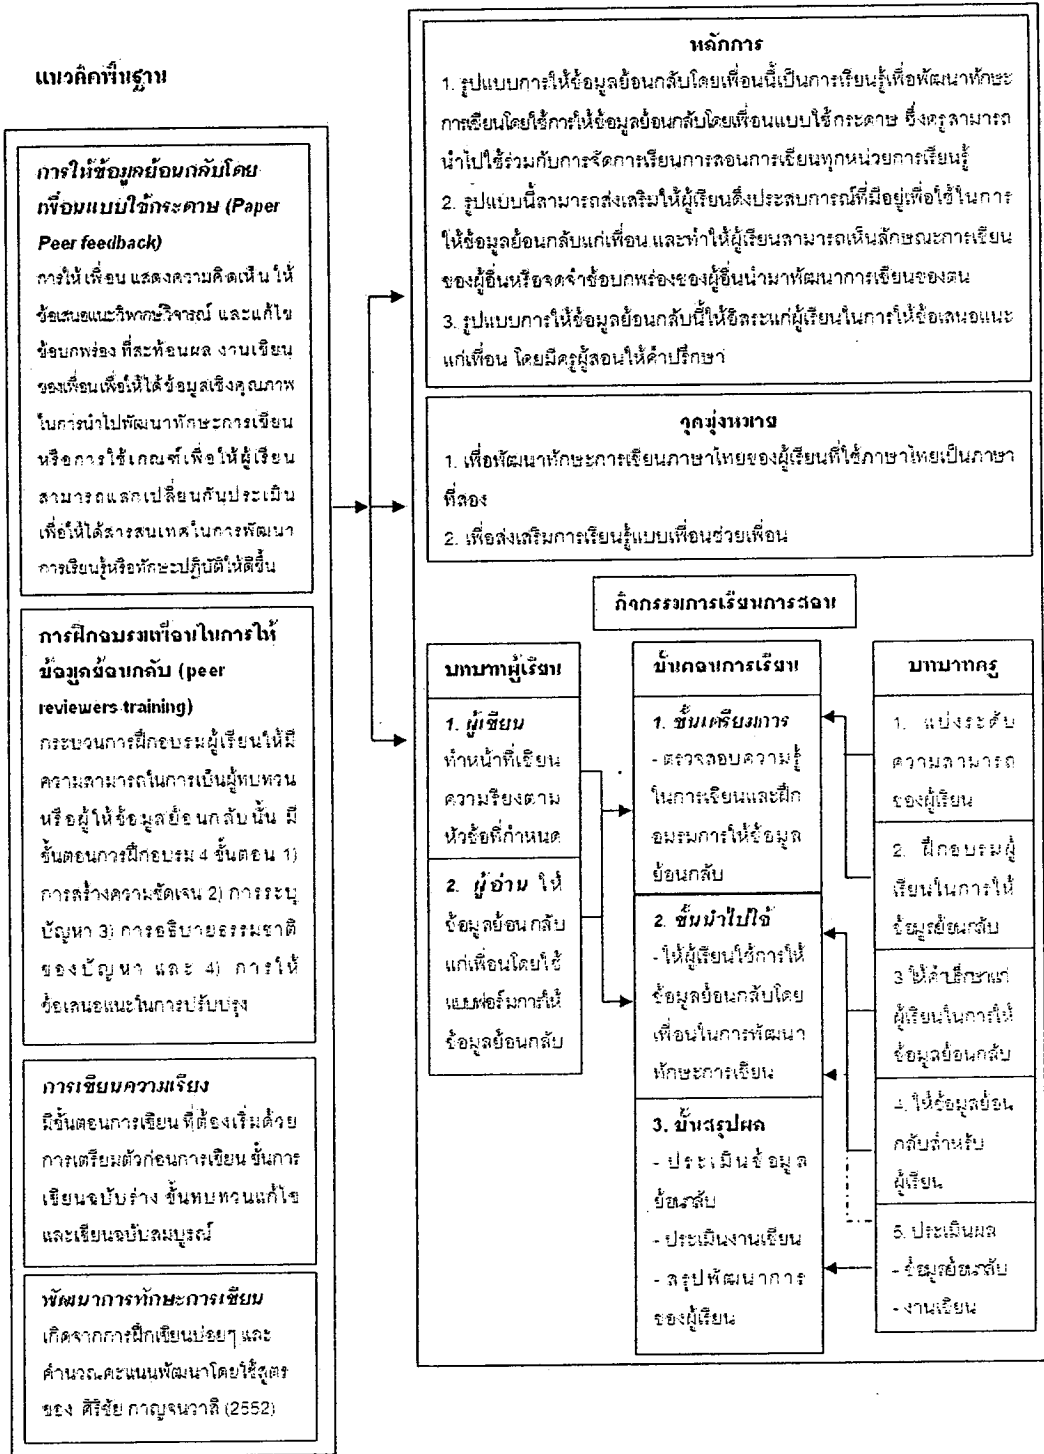 แนวคิดพื้นฐาน
การให้ข้อมูลย้อนกลับโดย
เพื่อนแบบใช้กระดาษ (Paper
Peer feedback)
การให้เพื่อน แสดงความคิดเห็น ให้
ข้อเสนอแนะวิพากษ์วิจารณ์ และแก้ไข
ข้อบกพร่อง ที่สะท้อนผล งานเขียน
ของเพื่อนเพื่อให้ได้ข้อมูลเชิงคุณภาพ
ในการนำไปพัฒนาทักษะการเขียน
หรือการใช้เกณฑ์เพื่อให้ผู้เรียน
สามารถแลกเปลี่ยนกันประเมิน
เพื่อให้ได้สารสนเทศในการพัฒนา
การเรียนรู้หรือทักษะปฏิบัติให้ดีขึ้น
การฝึกอบรมเพื่อนในการให้
ข้อมูลย้อนกลับ (peer
reviewers training)
กระบวนการฝึกอบรมผู้เรียนให้มี
ความสามารถในการเป็นผู้ทบทวน
หรือผู้ให้ข้อมูลย้อนกลับนั้น มี
ขั้นตอนการฝึกอบรม 4 ขั้นตอน 1)
การสร้างความชัดเจน 2) การระบุ
ปัญหา 3) การอธิบายธรรมชาติ
ของปัญหา และ 4) การให้
ข้อเสนอแนะในการปรับปรุง
การเขียนความเรียง
มีขั้นตอนการเขียน ที่ต้องเริ่มด้วย
การเตรียมตัวก่อนการเขียน ขั้นการ
เขียนฉบับร่าง ขั้นทบทวนแก้ไข
และเขียนฉบับสมบูรณ์
พัฒนาการทักษะการเขียน
เกิดจากการฝึกเขียนบ่อยๆ และ
คำนวณคะแนนพัฒนาโดยใช้สูตร
ของ ศิริชัย กาญจนวาสี (2552)
หลักการ
1. รูปแบบการให้ข้อมูลย้อนกลับโดยเพื่อนนี้เป็นการเรียนรู้เพื่อพัฒนาทักษะ
การเขียนโดยใช้การให้ข้อมูลย้อนกลับโดยเพื่อนแบบใช้กระดาษ ซึ่งครูสามารถ
นำไปใช้ร่วมกับการจัดการเรียนการสอนการเขียนทุกหน่วยการเรียนรู้
2. รูปแบบนี้สามารถส่งเสริมให้ผู้เรียนดึงประสบการณ์ที่มีอยู่เพื่อใช้ในการ
ให้ข้อมูลย้อนกลับแก่เพื่อน และทำให้ผู้เรียนสามารถเห็นลักษณะการเขียน
ของผู้อื่นหรือจดจำข้อบกพร่องของผู้อื่นนำมาพัฒนาการเขียนของตน
3. รูปแบบการให้ข้อมูลย้อนกลับนี้ให้อิสระแก่ผู้เรียนในการให้ข้อเสนอแนะ
แก่เพื่อน โดยมีครูผู้สอนให้คำปรึกษา
จุดมุ่งหมาย
1. เพื่อพัฒนาทักษะการเขียนภาษาไทยของผู้เรียนที่ใช้ภาษาไทยเป็นภาษา
ที่สอง
2. เพื่อส่งเสริมการเรียนรู้แบบเพื่อนช่วยเพื่อน
กิจกรรมการเรียนการสอน
บทบาทผู้เรียน
1. ผู้เขียน
ทำหน้าที่เขียน
ความเรียงตาม
หัวข้อที่กำหนด
2. ผู้อ่าน ให้
ข้อมูลย้อนกลับ
แก่เพื่อนโดยใช้
แบบฟอร์มการให้
ข้อมูลย้อนกลับ
ขั้นตอนการเรียน
1. ขั้นเตรียมการ
- ตรวจสอบความรู้
ในการเขียนและฝึก
อบรมการให้ข้อมูล
ย้อนกลับ
2. ขั้นนำไปใช้
- ให้ผู้เรียนใช้การให้
ข้อมูลย้อนกลับโดย
เพื่อนในการพัฒนา
ทักษะการเขียน
3. ขั้นสรุปผล
- ประเมินข้อมูล
ย้อนกลับ
- ประเมินงานเขียน
- สรุปพัฒนาการ
ของผู้เรียน
บทบาทครู
1. แบ่งระดับ
ความสามารถ
ของผู้เรียน
2. ฝึกอบรมผู้
เรียนในการให้
ข้อมูลย้อนกลับ
3 ให้คำปรึกษาแก่
ผู้เรียนในการให้
ข้อมูลย้อนกลับ
4. ให้ข้อมูลย้อน
กลับสำหรับ
ผู้เรียน
5. ประเมินผล
- ข้อมูลย้อนกลับ
- งานเขียน